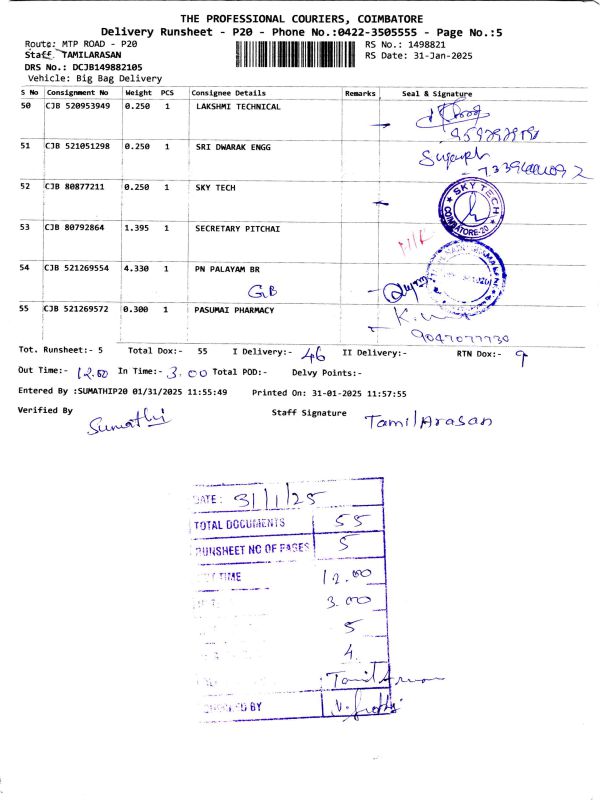 THE PROFESSIONAL COURIERS, COIMBATORE
Delivery Runsheet - P20 - Phone No.:0422-3505555 - Page No.:5
Route: MTP ROAD - P20
RS No.: 1498821
Staff. TAMILARASAN
RS Date: 31-Jan-2025
DRS No.: DCJB149882105
Vehicle: Big Bag Delivery
S No Consignment No Weight PCS Consignee Details Remarks Seal & Signature
50 CJB 520953949 0.250 1 LAKSHMI TECHNICAL
51 CJB 521051298 0.250 1 SRI DWARAK ENGG
52 CJB 80877211 0.250 1 SKY TECH
SKY TECH
COIMBATORE-20
53 CJB 80792864 1.395 1 SECRETARY PITCHAI
54 CJB 521269554 4.330 1 PN PALAYAM BR
GB
55 CJB 521269572 0.300 1 PASUMAI PHARMACY
9047077730
Tot. Runsheet:- 5 Total Dox:- 55 I Delivery:- 46 II Delivery:- RTN Dox:- 9
Out Time:- 12.00 In Time:- 3.00 Total POD:- Delvy Points:-
Entered By :SUMATHIP20 01/31/2025 11:55:49 Printed On: 31-01-2025 11:57:55
Verified By Sumathi Staff Signature TamilArasan
DATE: 31/1/25
TOTAL DOCUMENTS 55
RUNSHEET NO OF PAGES 5
TIME 12.00
3.00
5
4.
BY